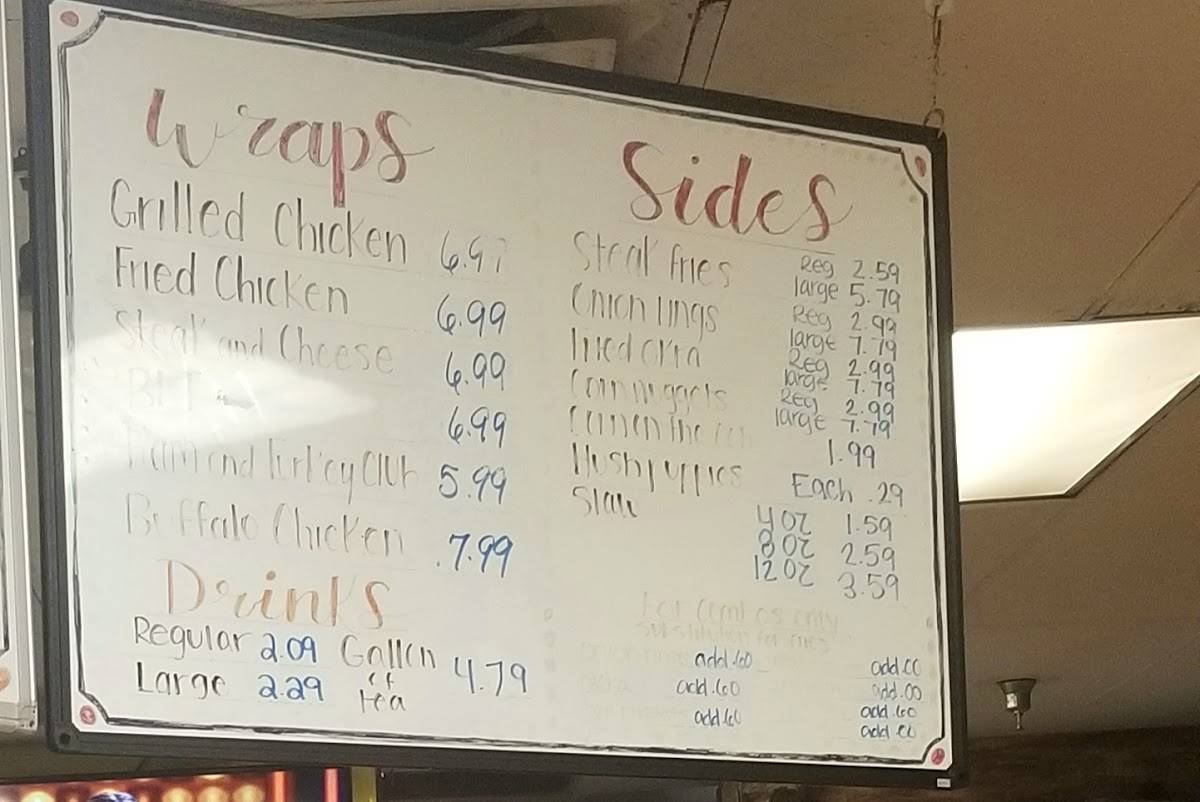 Wraps
Grilled Chicken 6.9
Fried Chicken 6.99
Steak and Cheese 6.99
BLT 6.99
Ham and Turkey Club 5.99
Buffalo Chicken 7.99
Drinks
Regular 2.09 Gallon of tea 4.79
Large 2.29
Sides
Steak fries Reg 2.59
large 5.79
Onion rings Reg 2.99
large 7.79
fried okra Reg 2.99
large 7.79
Corn nuggets Reg 2.99
large 7.79
Corn on the cob 1.99
Hushpuppies Each .29
Slaw 4 oz 1.59
8 oz 2.59
12 oz 3.59
For combos only
substitution for fries
add .60 add .60
add .60 add .00
add .60 add .60
add .60